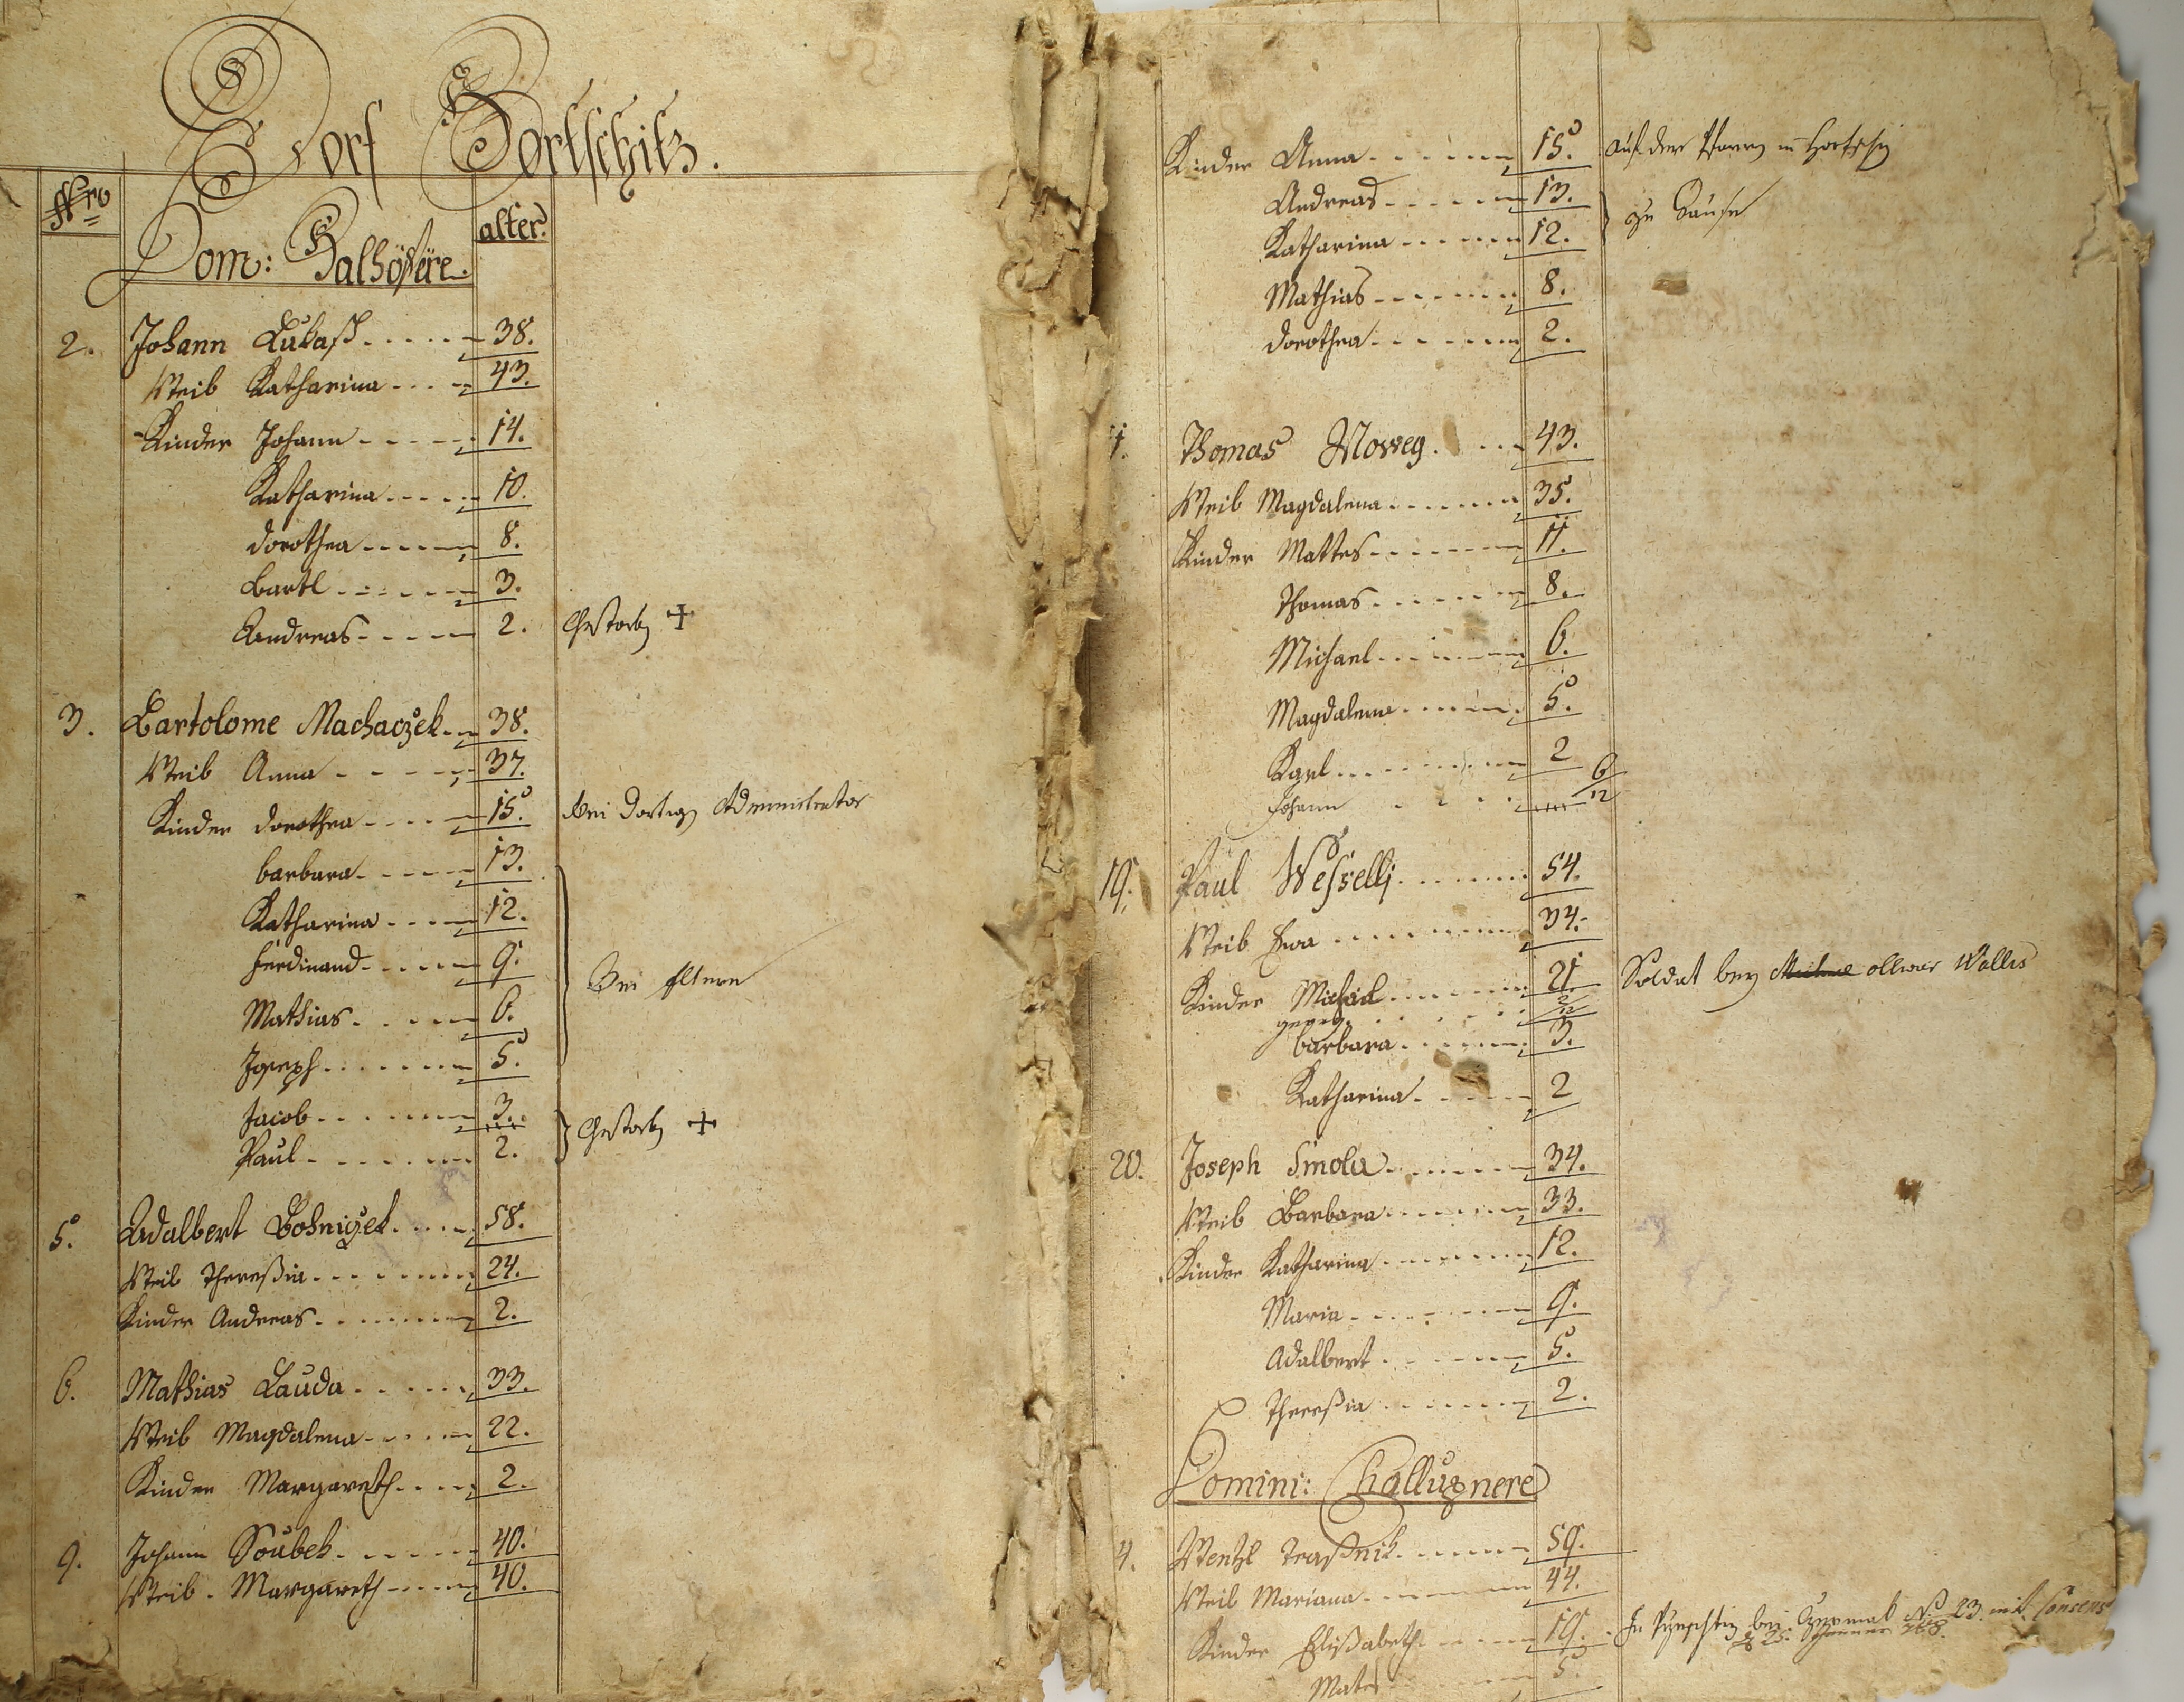 Dorf Bortschitz.
Nro
Dom: Halhofère. alter.
2. Johann Lukasch 38.
Weib Katharina 43.
Kinder Johann 14.
Katharina 10.
Dorothea 8.
Bartl 3.
Andreas 2. Gestorben +
3. Bartolome Machaczek 38.
Weib Anna 37.
Kinder Dorothea 15. bei Administrator
barbara 13.
Katharina 12.
Ferdinand 9.
bei Eltern
Mathias 6.
Joseph 5.
Jacob 3. Gestorben +
Paul 2.
5. Adalbert Bohniczek 58.
Weib Theresia 24.
Kinder Andreas 2.
6. Mathias Lauda 33.
Weib Magdalena 22.
Kinder Margareth 2.
9. Johann Soubek 40.
Weib Margareth 40.
Kinder Anna 15. auf der Pfarrey in
Andreas 13.
zu Hause
Katharina 12.
Mathias 8.
Dorothea 2.
Thomas 43.
Weib Magdalena 35.
Kinder Mattes 11.
Thomas 8.
Michael 6.
Magdalena 5.
Karl 2
Johann 6/12
19. Paul Wesselj 54.
Weib Eva 34.
Kinder Michael 21. Soldat bey Wallis
2/12
barbara 3.
Katharina 2
20. Joseph Smola 34.
Weib Barbara 33.
Kinder Katharina 12.
Maria 9.
Adalbert 5.
Theresia 2.
Domini: Challupnere
4. Wentzl 59.
Weib Mariana 44.
Kinder Elisabeth 19. bei Czermak No 23. mit Consens
25. 768.
Mates 5.